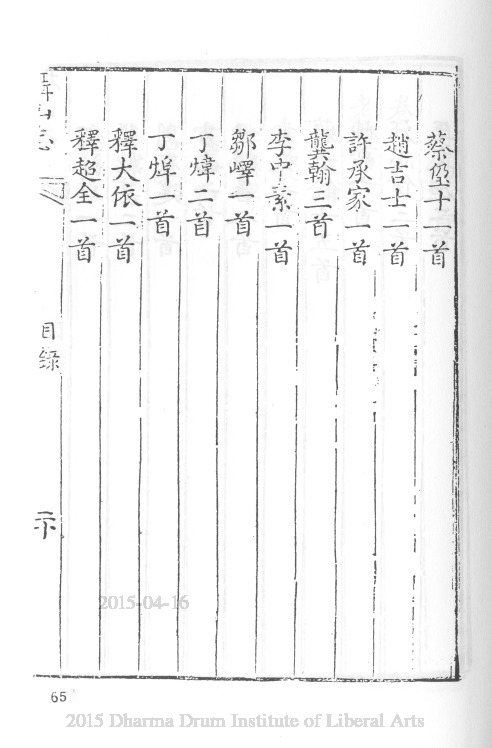 蔡壡十一首
趙吉士一首
許承家一首
龔翰三首
李中素一首
鄒嶧一首
丁煒二首
丁焯一首
釋大依一首
釋超全一首
目錄
65
2015-04-16
2015 Dharma Drum Institute of Liberal Arts